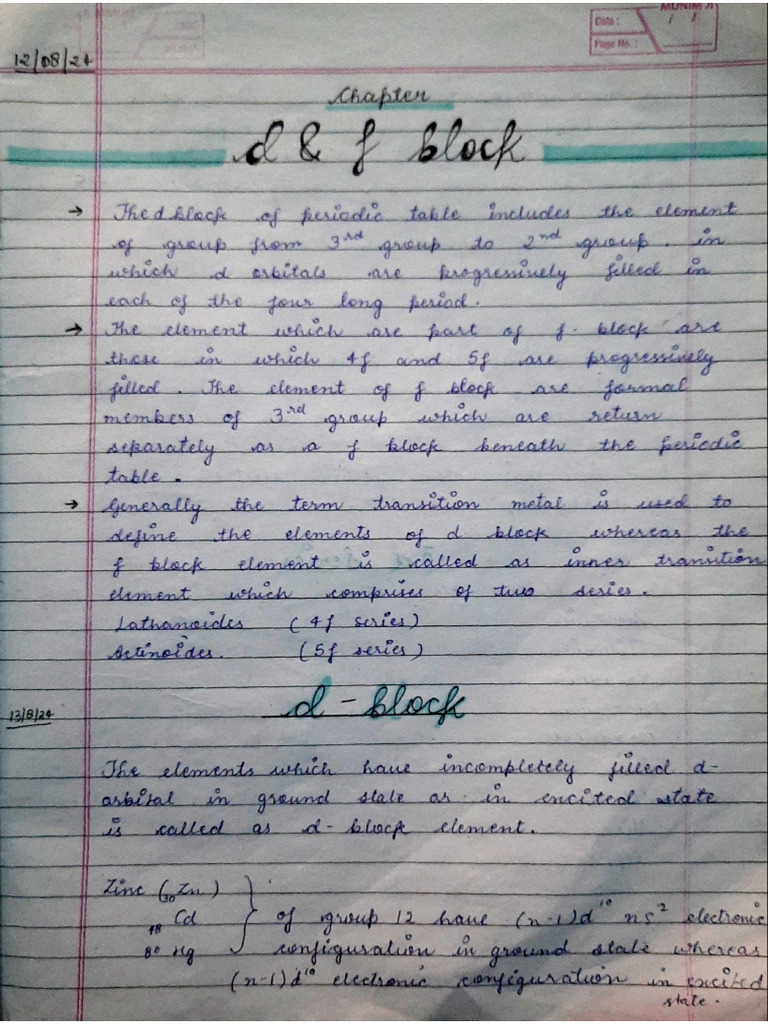 MUNIM JI
Date : / /
Page No. :
12/08/24
Chapter
d & f block
→ The d block of periodic table includes the element
of group from 3rd group to 2nd group. in
which d orbitals are progressively filled in
each of the four long period.
→ The element which are part of f- block are
those in which 4f and 5f are progressively
filled. The element of f block are formal
members of 3rd group which are return
separately as a f block beneath the periodic
table.
→ Generally the term transition metal is used to
define the elements of d block whereas the
f block element is called as inner transition
element which comprises of two series.
Lathanoides (4f series)
Actinoides. (5f series)
d - block
13/8/24
The elements which have incompletely filled d-
orbital in ground state or in encited state
is called as d- block element.
Zinc (30Zn)
48 Cd } of group 12 have (n-1)d10 ns2 electronic
80 Hg configuration in ground state whereas
(n-1)d10 electronic configuration in excited
state.